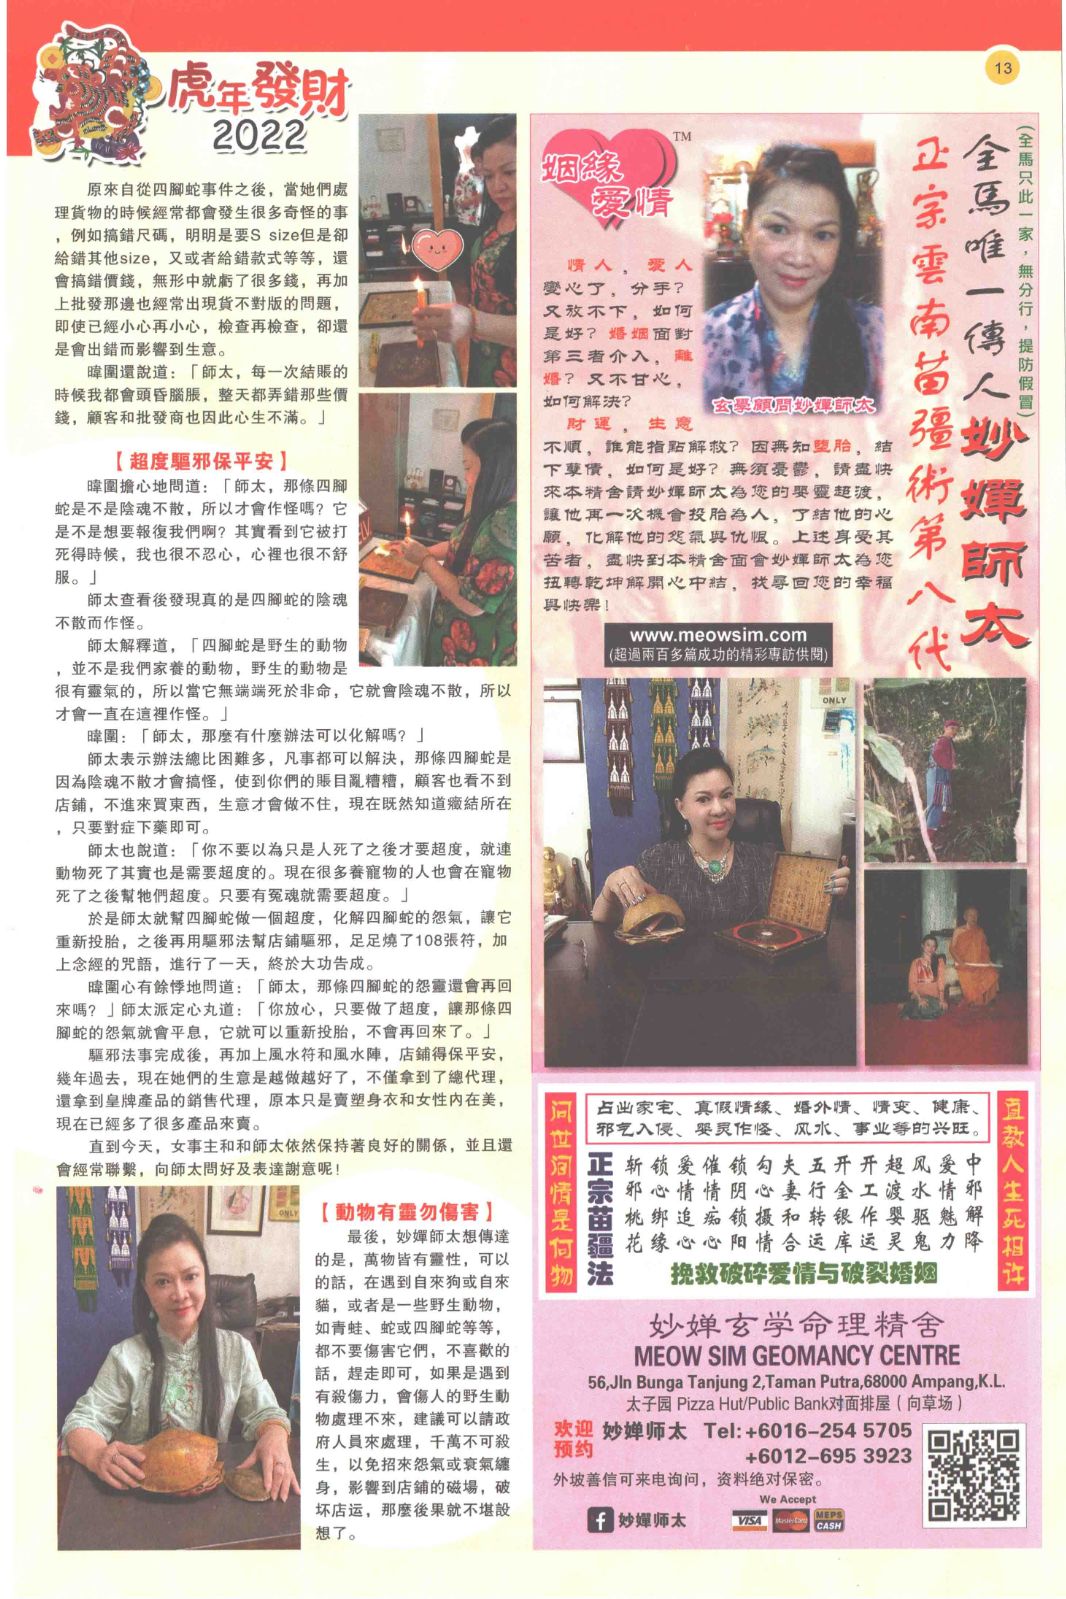 虎年發財
2022
13
原來自從四腳蛇事件之後，當她們處
理貨物的時候經常都會發生很多奇怪的事
，例如搞錯尺碼，明明是要S size但是卻
給錯其他size，又或者給錯款式等等，還
會搞錯價錢，無形中就虧了很多錢，再加
上批發那邊也經常出現貨不對版的問題，
即使已經小心再小心，檢查再檢查，卻還
是會出錯而影響到生意。
暐圍還說道：「師太，每一次結賬的
時候我都會頭昏腦脹，整天都弄錯那些價
錢，顧客和批發商也因此心生不滿。」
【超度驅邪保平安】
暐圍擔心地問道：「師太，那條四腳
蛇是不是陰魂不散，所以才會作怪嗎？它
是不是想要報復我們啊？其實看到它被打
死得時候，我也很不忍心，心裡也很不舒
服。」
師太查看後發現真的是四腳蛇的陰魂
不散而作怪。
師太解釋道，「四腳蛇是野生的動物
，並不是我們家養的動物，野生的動物是
很有靈氣的，所以當它無端端死於非命，它就會陰魂不散，所以
才會一直在這裡作怪。」
暐圍：「師太，那麼有什麼辦法可以化解嗎？」
師太表示辦法總比困難多，凡事都可以解決，那條四腳蛇是
因為陰魂不散才會搞怪，使到你們的賬目亂糟糟，顧客也看不到
店鋪，不進來買東西，生意才會做不住，現在既然知道癥結所在
，只要對症下藥即可。
師太也說道：「你不要以為只是人死了之後才要超度，就連
動物死了其實也是需要超度的。現在很多養寵物的人也會在寵物
死了之後幫牠們超度。只要有冤魂就需要超度。」
於是師太就幫四腳蛇做一個超度，化解四腳蛇的怨氣，讓它
重新投胎，之後再用驅邪法幫店鋪驅邪，足足燒了108張符，加
上念經的咒語，進行了一天，終於大功告成。
暐圍心有餘悸地問道：「師太，那條四腳蛇的怨靈還會再回
來嗎？」師太派定心丸道：「你放心，只要做了超度，讓那條四
腳蛇的怨氣就會平息，它就可以重新投胎，不會再回來了。」
驅邪法事完成後，再加上風水符和風水陣，店鋪得保平安，
幾年過去，現在她們的生意是越做越好了，不僅拿到了總代理，
還拿到皇牌產品的銷售代理，原本只是賣塑身衣和女性內在美，
現在已經多了很多產品來賣。
直到今天，女事主和和師太依然保持著良好的關係，並且還
會經常聯繫，向師太問好及表達謝意呢！
【動物有靈勿傷害】
最後，妙嬋師太想傳達
的是，萬物皆有靈性，可以
的話，在遇到自來狗或自來
貓，或者是一些野生動物，
如青蛙、蛇或四腳蛇等等，
都不要傷害它們，不喜歡的
話，趕走即可，如果是遇到
有殺傷力，會傷人的野生動
物處理不來，建議可以請政
府人員來處理，千萬不可殺
生，以免招來怨氣或衰氣纏
身，影響到店鋪的磁場，破
坏店运，那麼後果就不堪設
想了。
姻緣
愛情
TM
(全馬只此一家，無分行，提防假冒)
全馬唯一傳人妙嬋師太
正宗雲南苗疆術第八代
玄學顧問妙嬋師太
情人，愛人
變心了，分手？
又放不下，如何
是好？婚姻面對
第三者介入，離
婚？又不甘心，
如何解決？
財運，生意
不順，誰能指點解救？因無知墮胎，結
下孽債，如何是好？無須憂鬱，請盡快
來本精舍請妙嬋師太為您的嬰靈超渡，
讓他再一次機會投胎為人，了結他的心
願，化解他的怨氣與仇恨。上述身受其
苦者，盡快到本精舍面會妙嬋師太為您
扭轉乾坤解開心中結，找尋回您的幸福
與快樂！
www.meowsim.com
(超過兩百多篇成功的精彩專訪供閱)
ONLY
问世间情是何物
直教人生死相许
占出家宅、真假情缘、婚外情、情变、健康、
邪乞入侵、婴灵作怪、风水、事业等的兴旺。
正宗苗疆法
斩锁爱催锁勾夫五开开超风爱中
邪心情情阴心妻行金工渡水情邪
桃绑追痴锁摄和转银作婴驱魅解
花缘心心阳情合运库运灵鬼力降
挽救破碎爱情与破裂婚姻
妙婵玄学命理精舍
MEOW SIM GEOMANCY CENTRE
56,Jln Bunga Tanjung 2,Taman Putra,68000 Ampang,K.L.
太子园 Pizza Hut/Public Bank对面排屋（向草场）
欢迎
预约
妙婵师太 Tel:+6016-254 5705
+6012-695 3923
外坡善信可来电询问，资料绝对保密。
We Accept
妙嬋师太
VISA MasterCard MEPS CASH